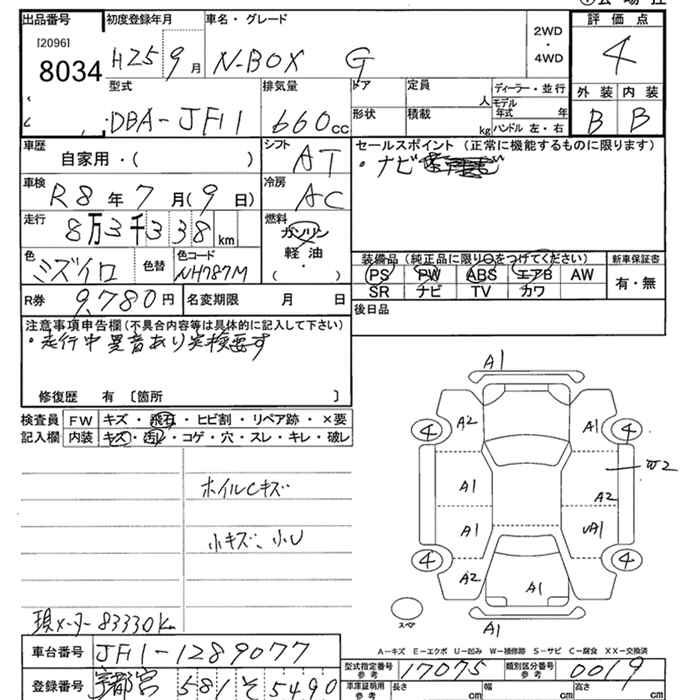 出品番号 初度登録年月 車名・グレード 2WD・4WD 評価点
[2096] 8034 H25 9月 N-BOX G 4
型式 排気量 ドア 定員 人 ディーラー・並行 外装 内装
DBA-JF11 660cc 形状 積載 kg モデル年式 年 ハンドル 左・右 B B
車歴 自家用・( ) シフト AT セールスポイント (正常に機能するものに限ります)
・ナビ
車検 R8年7月(9日) 冷房 AC
走行 8万3千338km 燃料 ガソリン・軽油・( )
色 ミズイロ 色替 色コード NH787M
装備品 (純正品に限り○をつけてください) 新車保証書
PS PW ABS エアB AW 有・無
SR ナビ TV カワ
R券 9,780円 名変期限 月 日 後日品
注意事項申告欄(不具合内容等は具体的に記入して下さい)
・走行中異音あり 要す
修復歴 有 〔箇所 〕
検査員 FW キズ・飛石・ヒビ割・リペア跡・×要
記入欄 内装 キズ・汚レ・コゲ・穴・スレ・キレ・破レ
ホイルCキズ
小キズ、小U
現メーター 83330Km
A1
A2 A1
4 4
W2
A1 A2
A1 UA1
4 4
A2 A1
スペア
A1
A-キズ E-エクボ U-凹み W-補修跡 S-サビ C-腐食 XX-交換済
車台番号 JF11-1289077
型式指定番号 参考 17075 類別区分番号 参考 0019
登録番号 宇都宮 581 そ 5490
車庫証明用 参考 長さ cm 幅 cm 高さ cm